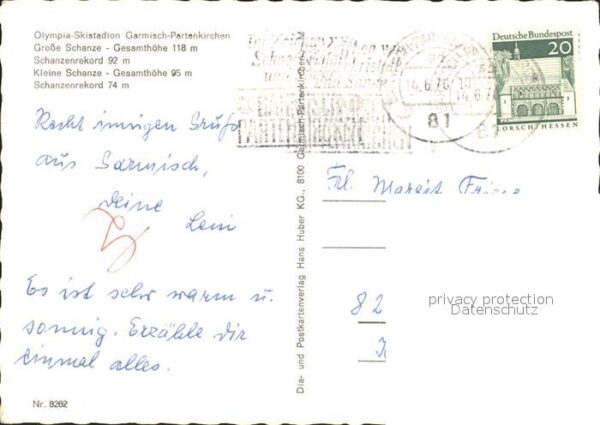 Olympia-Skistadion Garmisch-Partenkirchen
Große Schanze - Gesamthöhe 118 m
Schanzenrekord 92 m
Kleine Schanze - Gesamthöhe 95 m
Schanzenrekord 74 m
Recht innigen Gruß
aus Garmisch,
deine
Leni
Es ist sehr warm u.
sonnig. Erzähle dir
einmal alles.
Nr. 8262
Dia- und Postkartenverlag Hans Huber KG., 8100 Garmisch-Partenkirchen
GARMISCH-
PARTENKIRCHEN
14.6.76
81
Deutsche Bundespost
20
LORSCH/HESSEN
Frl. Mareit
82
privacy protection
Datenschutz